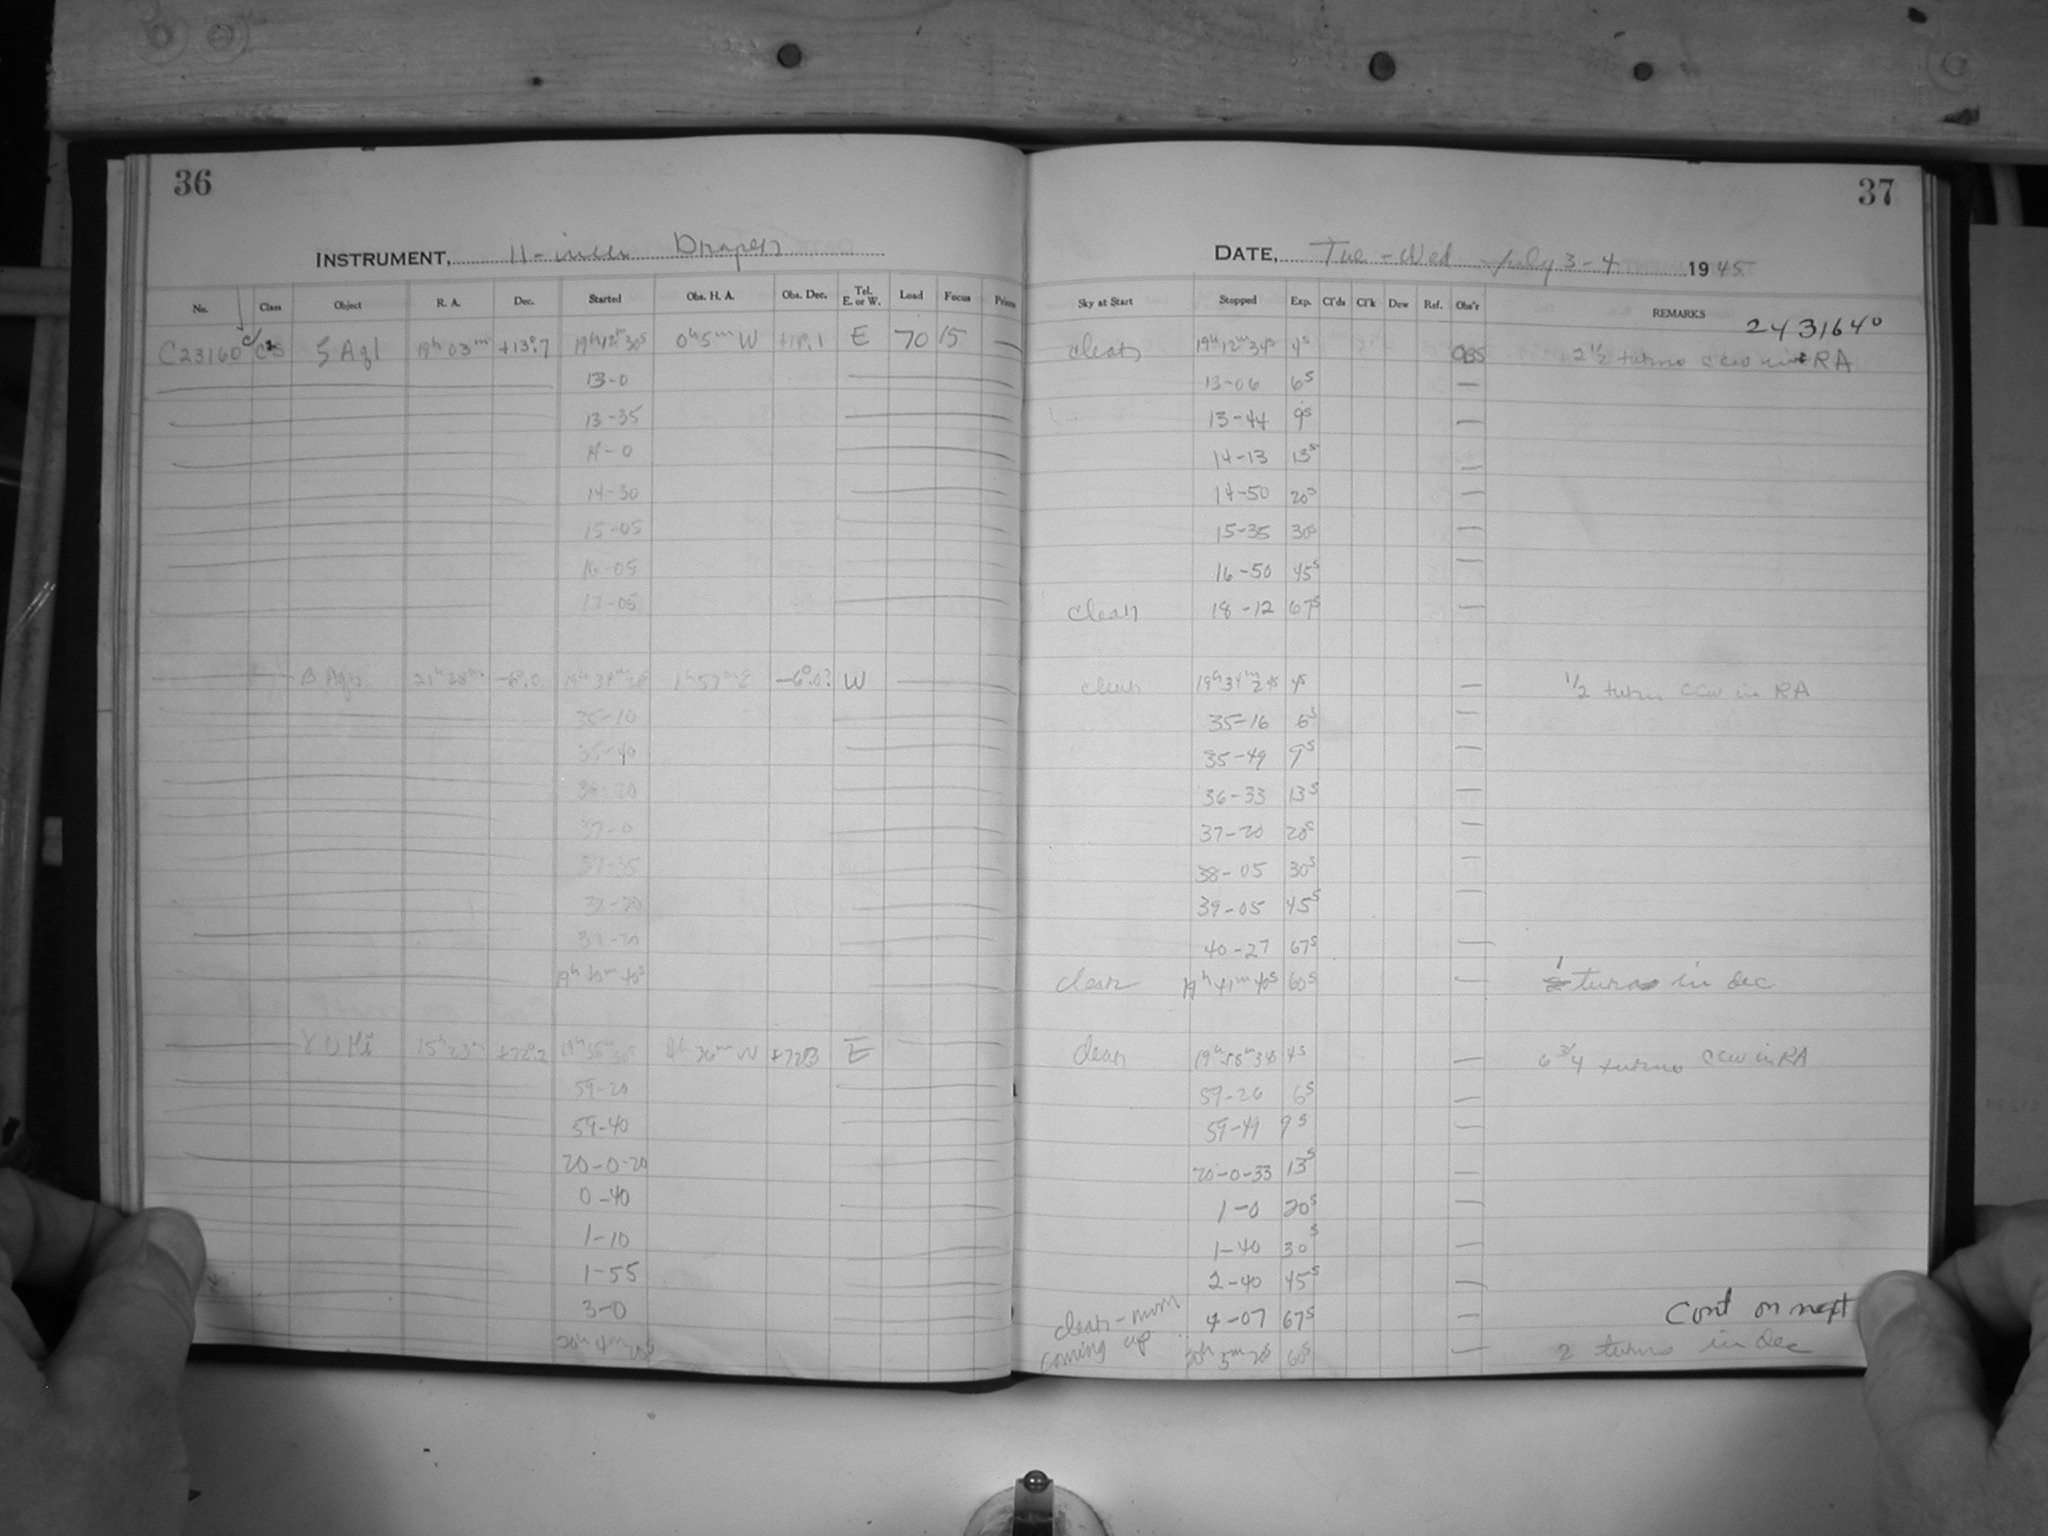 36
37
INSTRUMENT, 11-inch Draper
DATE, Tue-Wed July 3-4 1945
No. Class Object R. A. Dec. Started Obs. H. A. Obs. Dec. Tel. E. or W. Load Focus Prism
Sky at Start Stopped Exp. Cl'ds Cl'k Dew Ref. Obs'r REMARKS
2431640
C23160 ζ Aql 19h 03m +13°.7 19h12m30s 0h5m W E 70 15 — clear 19h12m34s 4s OBS 2 1/2 turns ccw in RA
13-0 13-06 6s —
13-35 13-44 9s —
14-0 14-13 13s —
14-30 14-50 20s —
15-05 15-35 30s —
16-05 16-50 45s —
17-05 clear 18-12 67s —
β Aqr 21h 28m -6°.0 1h57m E W clear 19h34m24s 4s — 1/2 turn ccw in RA
35-10 35-16 6s —
35-40 35-49 9s —
36-20 36-33 13s —
37-0 37-20 20s —
37-35 38-05 30s —
39-05 45s —
40-27 67s —
19h40m40s clear 19h41m40s 60s — 1 turn in dec
γ UMi 15h23m +72°.2 4h 36m W E clear 19h58m34s 4s — 6 3/4 turns ccw in RA
59-20 59-26 6s —
59-40 59-49 9s —
20-0-20 20-0-33 13s —
0-40 1-0 20s —
1-10 1-40 30s —
1-55 2-40 45s —
3-0 clear - moon 4-07 67s — Cont on next
20h 4m 20s coming up 20h 5m 20s 60s — 2 turns in dec